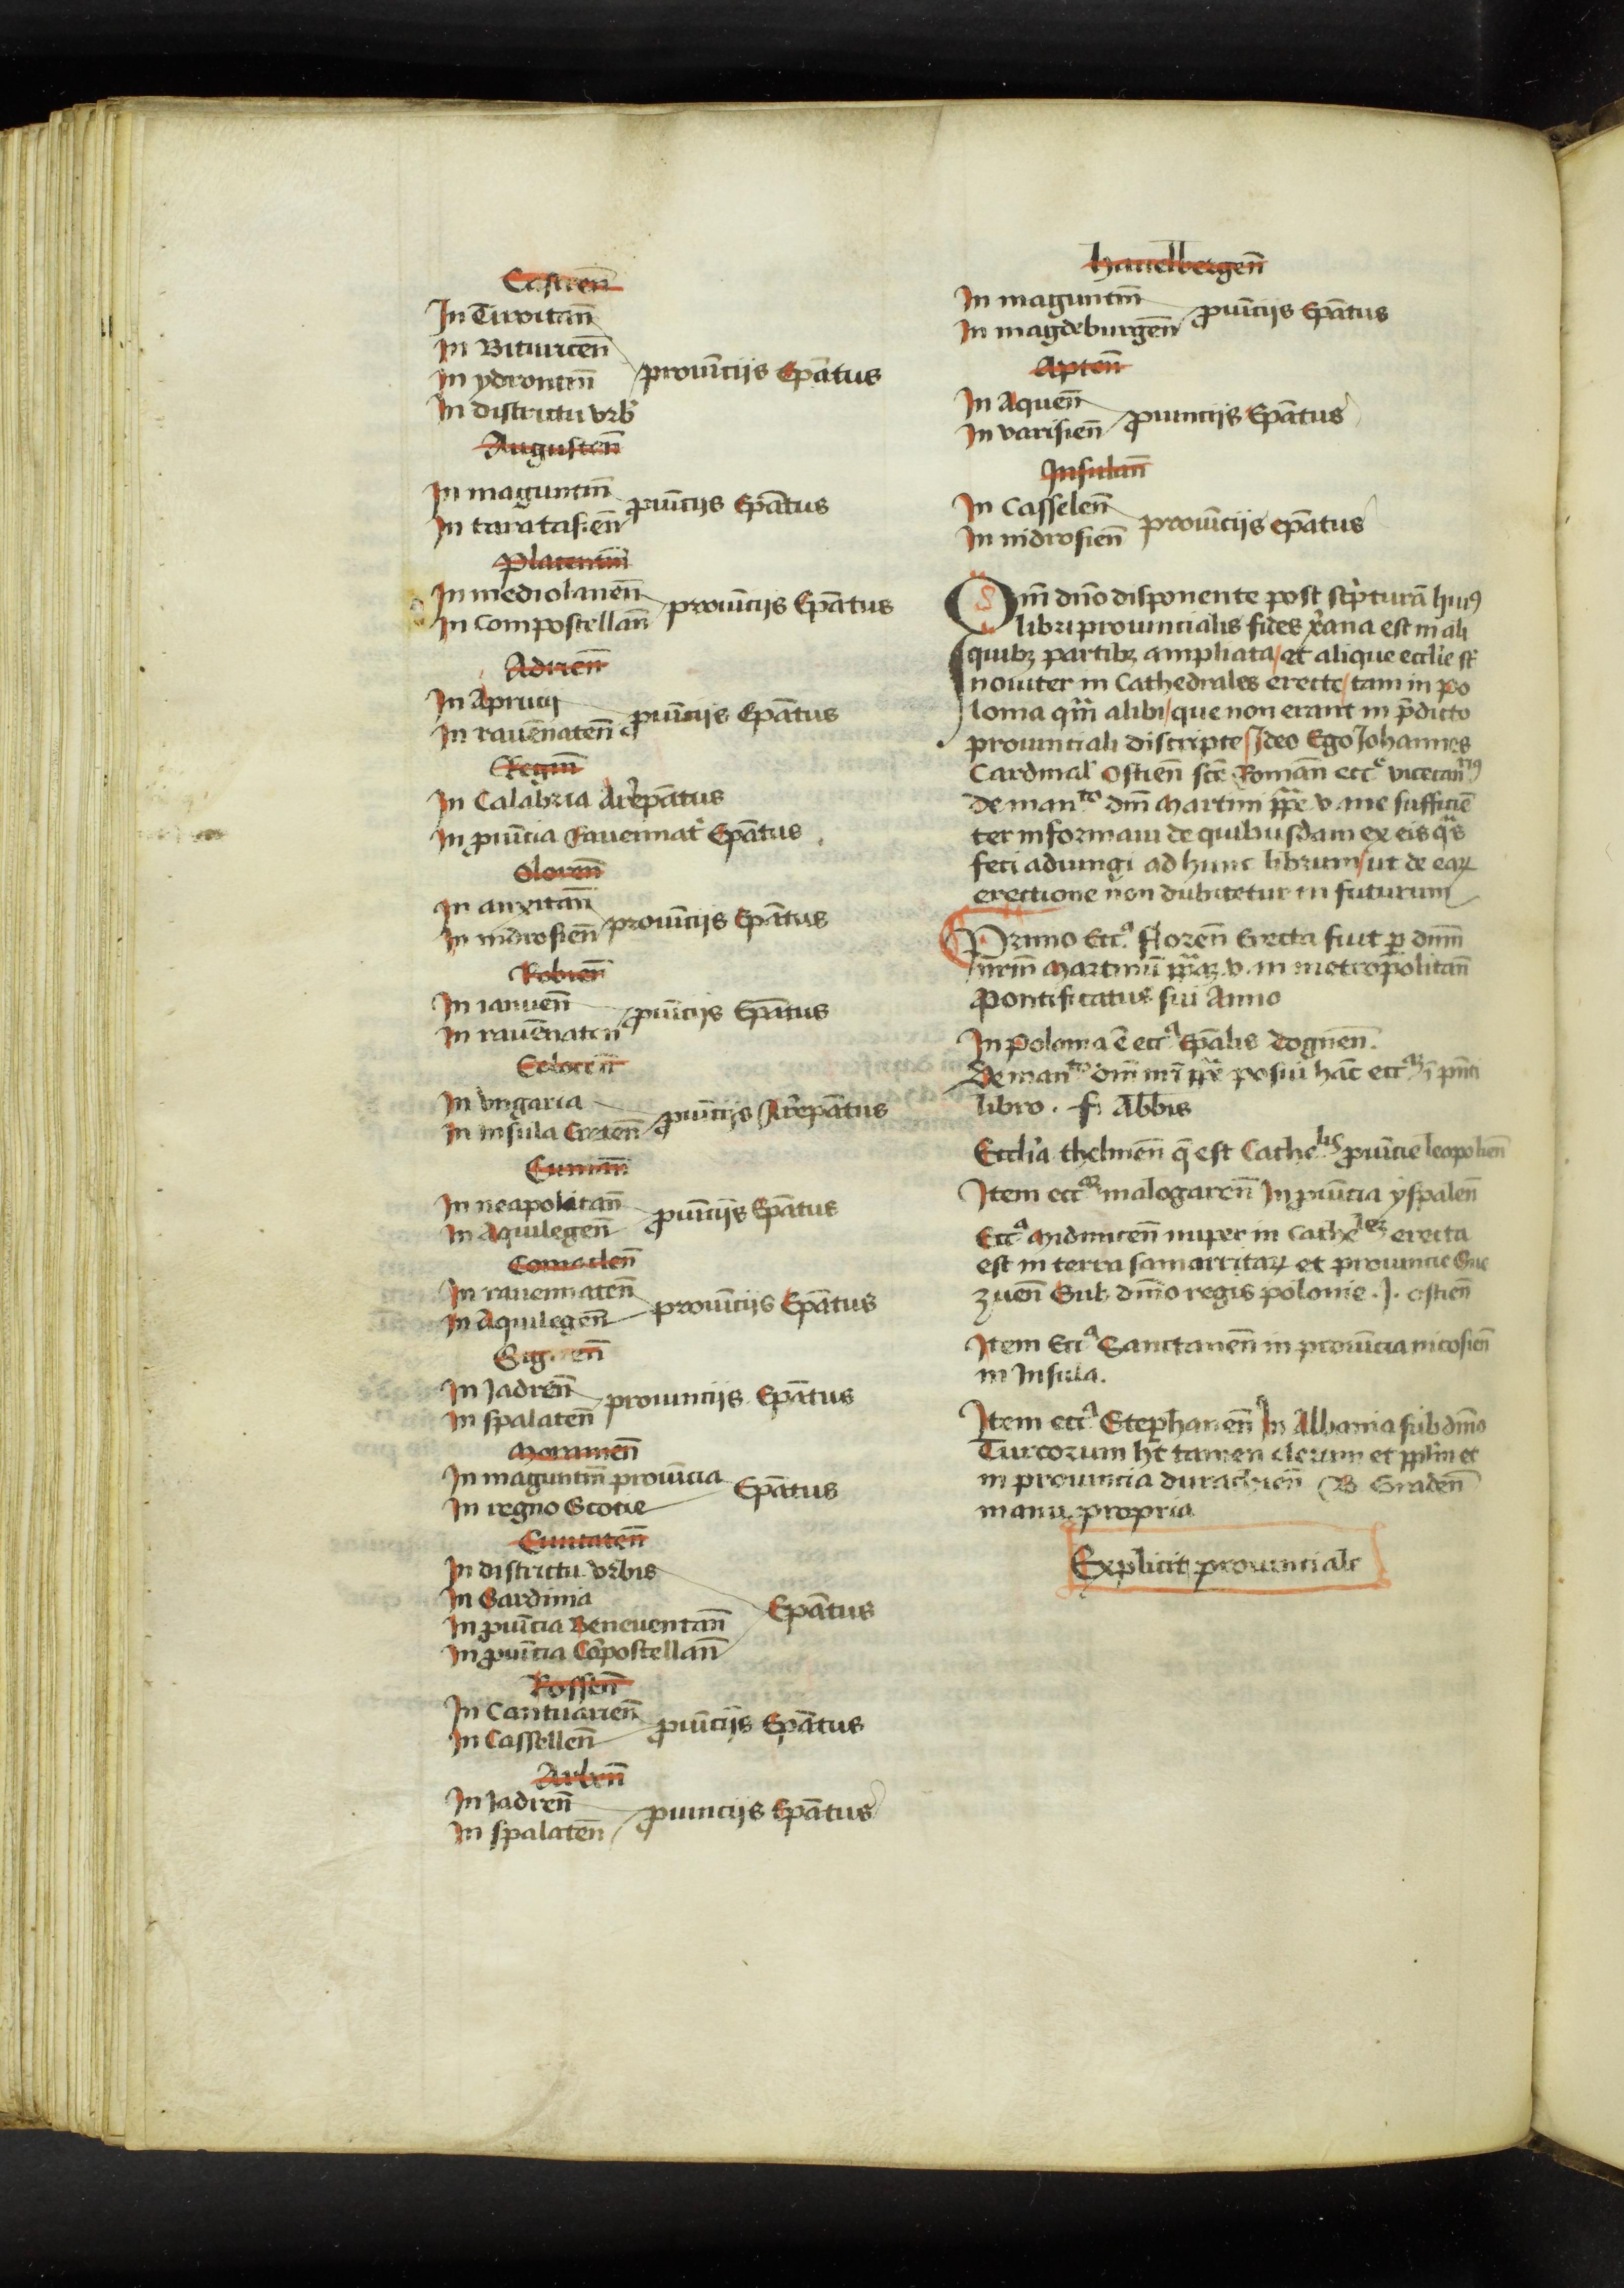 Castren̄
In Turritan̄
In Bituricen̄
In ydrontin̄
prouīciis Ep̄atus
In districtu vrb̾
Augusten̄
In maguntin̄
In taratasien̄
ꝓuīciis Ep̄atus
Placentin̄
In mediolanen̄
In Compostellan̄
prouīciis Ep̄atus
Adrien̄
In Aprucij
In rauēnaten̄
ꝓuīciis Ep̄atus
Regin̄
In Calabria Arc̄ep̄atus
In ꝓuīcia rauennat̾ Ep̄atus
Oloren̄
In auxitan̄
In nidrosien̄
prouīciis Ep̄atus
Robien̄
In ianuen̄
In rauēnaten̄
ꝓuīciis Ep̄atus
In vngaria
In insula Creten̄
ꝓuīciis Arc̄ep̄atus
Cuman̄
In neapolitan̄
In Aquilegen̄
ꝓuīciis Ep̄atus
Comaclen̄
In rauennaten̄
In Aquilegen̄
prouīciis Ep̄atus
In Jadren̄
In spalaten̄
prouinciis Ep̄atus
In maguntin̄ prouīcia
In regno Scotie
Ep̄atus
Ciuitaten̄
In districtu vrbis
In Sardinia
In ꝓuīcia Beneuentan̄
In ꝓuīcia Cōpostellan̄
Ep̄atus
Rossen̄
In Cantuarien̄
In Cassellen̄
ꝓuīciis Ep̄atus
Arben̄
In Jadren̄
In spalaten̄
ꝓuinciis Ep̄atus
hauelbergen̄
In maguntin̄
In magdeburgen̄
ꝓuīciis Ep̄atus
Apten̄
In Aquen̄
In varisien̄
ꝓuinciis Ep̄atus
Insulan̄
In Casselen̄
In nidrosien̄
prouīciis ep̄atus
Qm̄ dn̄o disponente post sc̾pturā huiꝰ
libri prouincialis fides xp̄ana est in ali
quibꝫ partibꝫ ampliata / et alique eccl̄ie st̄
nouiter in Cathedrales erecte / tam in po
lonia qm̄ alibi / que non erant in p̄dicto
prouinciali discripte / Ideo Ego Johannes
Cardinal̾ Ostien̄ scē Roman̄ eccᵉ vicecan̾ʳⁱꝰ
de manᵗᵒ dn̄i Martini pp̄e v. me sufficiē
ter informaui de quibusdam ex eis qᵃs
feci adiungi ad hunc librum / ut de eaꝝ
erectione non dubitetur in futurum
Primo Eccᵃ floren̄ Erecta fuit ꝑ dn̄m
nr̄m Martinū pp̄aꝫ v. in metropolitan̄
Pontificatus sui Anno
In Polonia ē eccᵃ Ep̄alis
De manᵗᵒ dn̄i nr̄i pp̄e posui hāc eccᵃꝫ ī p̄nti
libro . f. Abb̄is
Eccl̄ia chelmen̄ q̄ est Catheˡⁱˢ ꝓuīcie leopolien̄
Item eccᵃ malogaren̄ In ꝓuīcia yspalen̄
Eccᵃ Mdnicen̄ nuper in Catheˡᵉꝫ erecta
est in terra samaritaꝝ et prouincie Gne
zuen̄ Sub dn̄io regis polonie . J. ostien̄
Item Eccᵃ Sanctanen̄ in prouīcia nicosien̄
in Insula.
Item eccᵃ Stephanen̄ In Albania sub dn̄io
Turcorum hꝫ tamen clerum et ppl̄m et
in prouincia duracien̄ B. Graden̄
manu propria
Explicit prouinciale